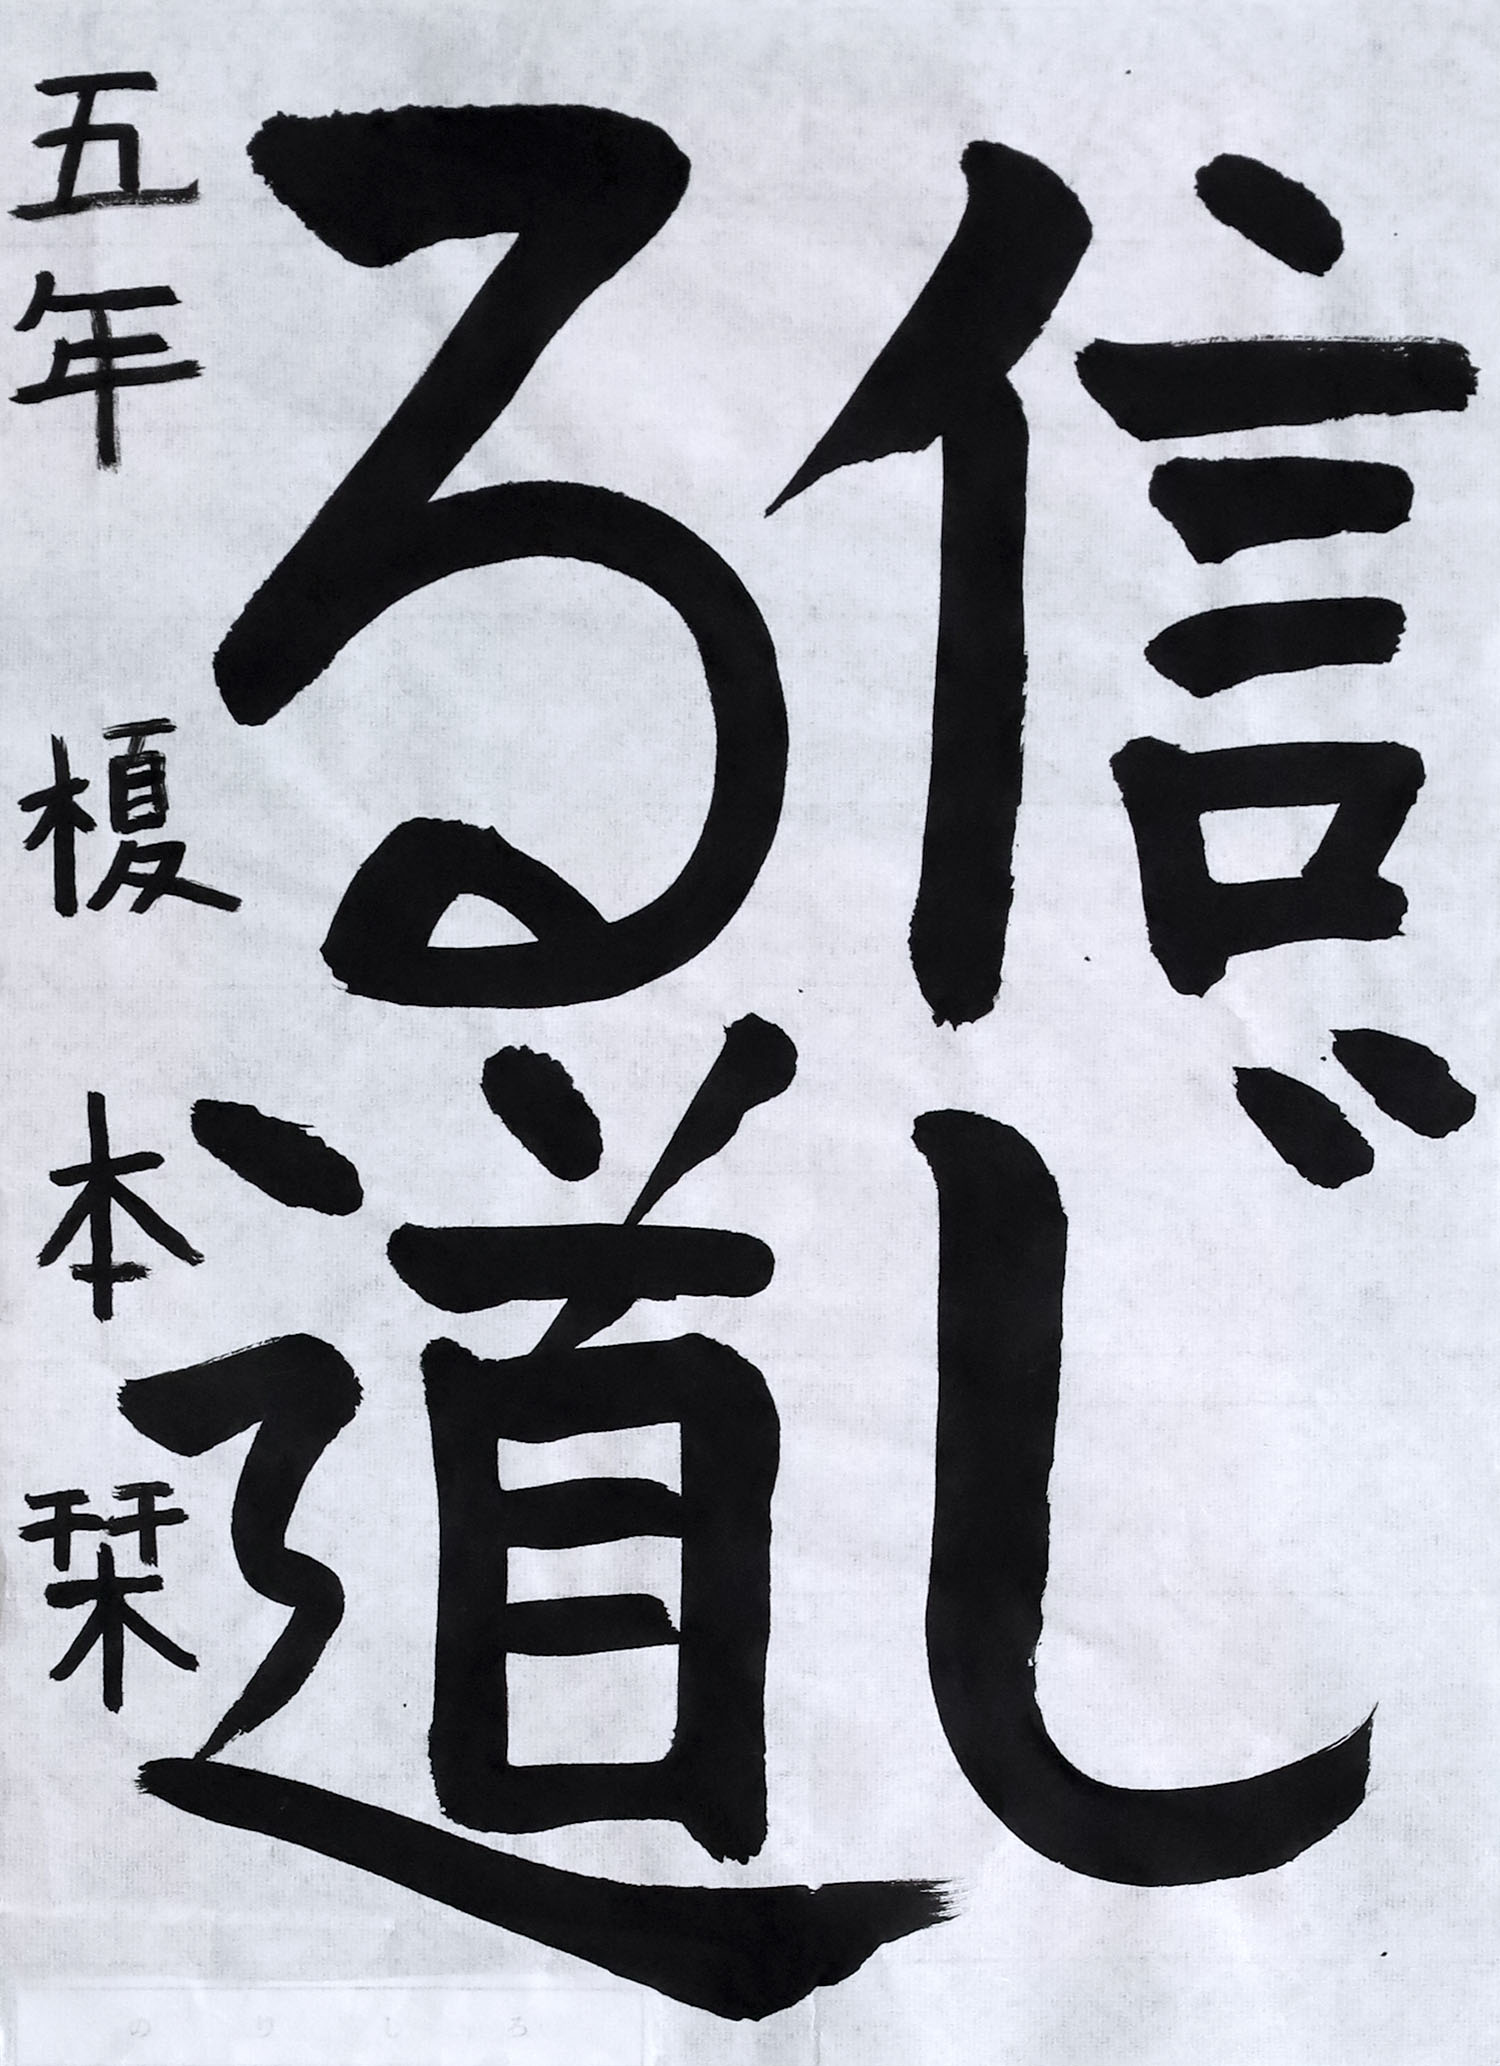 信じ
る道
五年 榎本栞
のりしろ